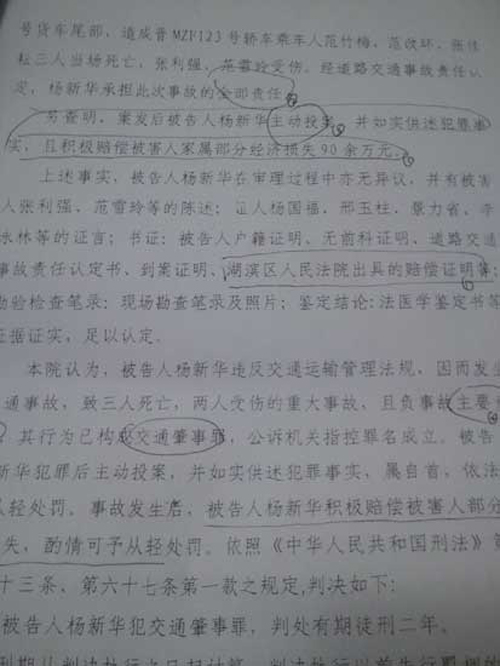 号货车尾部，造成晋MZF123号轿车乘车人范竹梅、范改环、张佳
耘三人当场死亡，张利强、范雪玲受伤。经道路交通事故责任认
定，杨新华承担此次事故的全部责任。
另查明，案发后被告人杨新华主动投案，并如实供述犯罪事
实，且积极赔偿被害人家属部分经济损失90余万元。
上述事实，被告人杨新华在审理过程中亦无异议，并有被害
人张利强、范雪玲等的陈述；证人杨国福、邢玉柱、景力省、李
水林等的证言；书证：被告人户籍证明、无前科证明、道路交通
事故责任认定书、到案证明、湖滨区人民法院出具的赔偿证明等；
勘验检查笔录：现场勘查笔录及照片；鉴定结论：法医学鉴定书等
证据证实，足以认定。
本院认为，被告人杨新华违反交通运输管理法规，因而发生
通事故，致三人死亡，两人受伤的重大事故，且负事故主要
，其行为已构成交通肇事罪，公诉机关指控罪名成立。被告
新华犯罪后主动投案，并如实供述犯罪事实，属自首，依法
从轻处罚。事故发生后，被告人杨新华积极赔偿被害人部分
失，酌情可予从轻处罚。依照《中华人民共和国刑法》第
十三条、第六十七条第一款之规定，判决如下：
被告人杨新华犯交通肇事罪，判处有期徒刑二年。